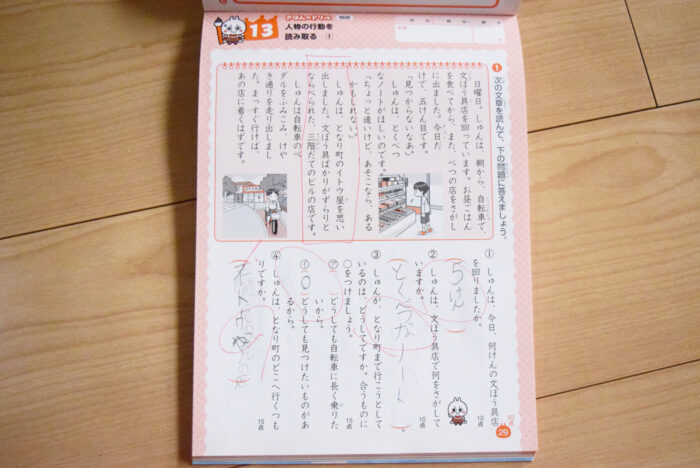 13
きほんのドリル
物語
人物の行動を
読み取る ①
月 日 時 分〜 時 分
名前
1 次の文章を読んで、下の問題に答えましょう。
日曜日。しゅんは、朝から、自転車で、
文ぼう具店を回っています。お昼ごはん
を食べてから、また、べつの店をさがし
に出ました。今日だ
けで、五けん目です。
「見つからないなあ」
しゅんは、とくべつ
なノートがほしいのです。
「ちょっと遠いけど、あそこなら、ある
かもしれない」
しゅんは、となり町のイトウ屋を思い
出しました。文ぼう具ばかりがずらりと
ならべられた、三階だてのビルの店です。
しゅんは自転車のペ
ダルをふみこみ、けや
き通りを走り出しまし
た。まっすぐ行けば、
あの店に着くはずです。
① しゅんは、今日、何けんの文ぼう具店
を回りましたか。
10点
5けん
② しゅんは、文ぼう具店で何をさがして
いますか。
10点
とくべつなノート
③ しゅんが、となり町まで行こうとして
いるのは、どうしてですか。合うものに
○をつけましょう。
15点
ア( )どうしても自転車に長く乗りた
いから。
イ(○)どうしても見つけたいものがあ
るから。
④ しゅんは、となり町のどこへ行くつも
りですか。
15点
50点
29